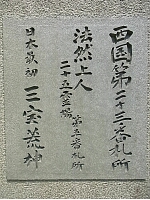 西国第二十三番札所
法然上人
二十五霊場 第五番札所
日本最初
三宝荒神